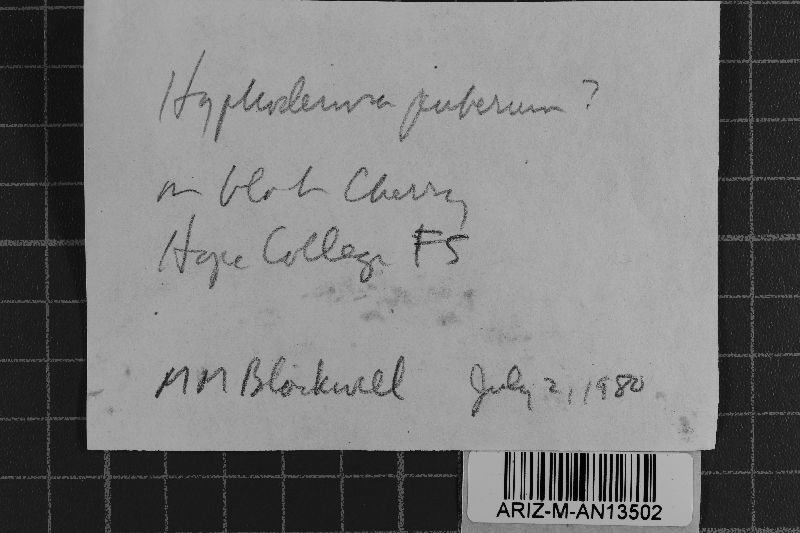 Hyphoderma puberum ?
on black Cherry
Hope College FS
MM Blackwell July 2, 1980
ARIZ-M-AN13502